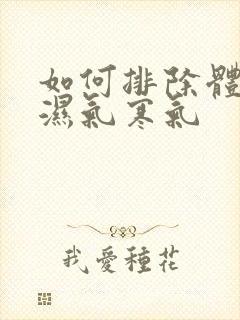 如何排除體
濕氣寒氣
我愛種花